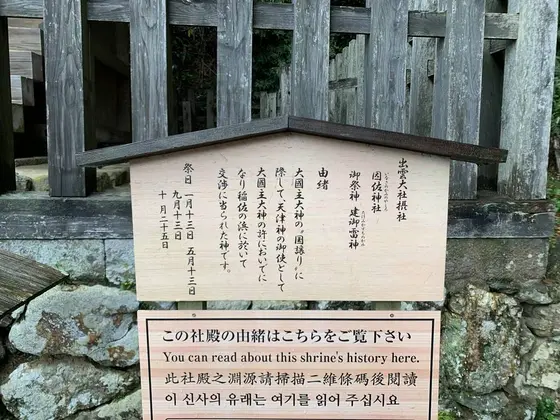 出雲大社摂社
因佐神社
いなさのかみのやしろ
御祭神 建御雷神
たけみかづちのかみ
由緒
大國主大神の“国譲り”に
際して、天津神の御使として
大國主大神の許においでに
なり稲佐の浜に於いて
交渉に当られた神です。
祭日 一月十三日 五月十三日
九月十三日
十月二十五日
この社殿の由緒はこちらをご覧下さい
You can read about this shrine's history here.
此社殿之淵源請掃描二維條碼後閱讀
이 신사의 유래는 여기를 읽어 주십시요